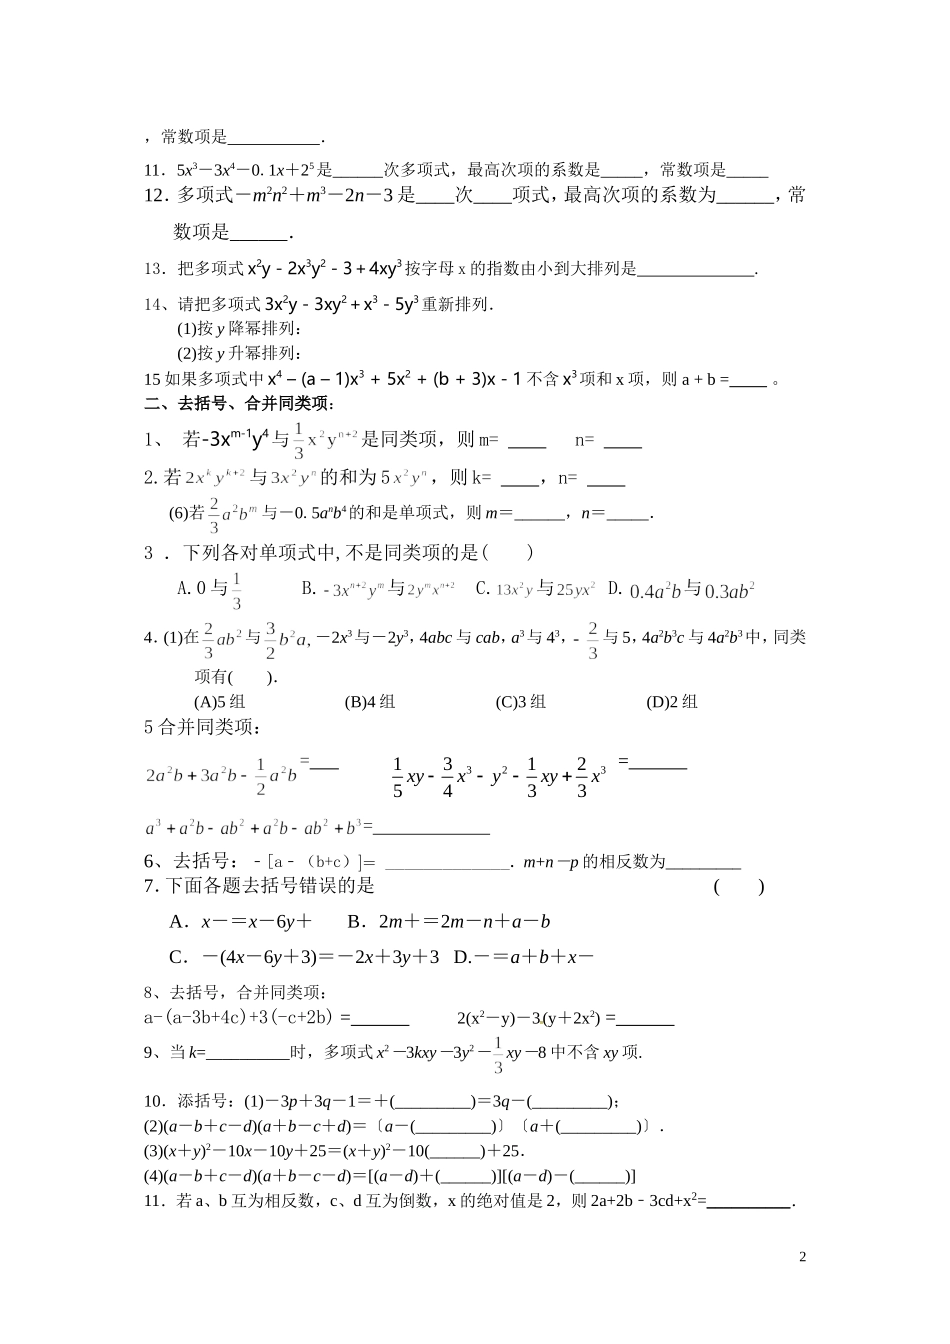 ，常数项是___________．
11．5x³－3x⁴－0.1x＋2⁵是______次多项式，最高次项的系数是_____，常数项是_____
12．多项式－m²n²＋m³－2n－3 是____次____项式，最高次项的系数为______，常
数项是______．
13．把多项式 x²y－2x³y²－3＋4xy³按字母 x 的指数由小到大排列是______________．
14、请把多项式 3x²y－3xy²＋x³－5y³重新排列．
(1)按 y 降幂排列：
(2)按 y 升幂排列：
15 如果多项式中 x⁴ – (a – 1)x³ + 5x² + (b + 3)x - 1 不含 x³项和 x 项，则 a + b =____ 。
二、去括号、合并同类项：
1、 若-3xᵐ⁻¹y⁴与 1/3 x²yⁿ⁺² 是同类项，则 m= ____ n= ____
2.若 2xᵏyᵏ⁺² 与 3x²yⁿ 的和为 5x²yⁿ，则 k= ____，n= ____
(6)若 2/3 a²bᵐ 与－0.5aⁿb⁴的和是单项式，则 m＝______，n＝_____．
3 ．下列各对单项式中,不是同类项的是( )
A.0 与 1/3 B. -3xⁿ⁺²yᵐ与2yᵐxⁿ⁺² C. 13x²y与25yx² D. 0.4a²b与0.3ab²
4．(1)在 2/3 ab² 与 3/2 b²a，－2x³与－2y³，4abc 与 cab，a³与 4³，- 2/3 与 5，4a²b³c 与 4a²b³中，同类
项有( )．
(A)5 组 (B)4 组 (C)3 组 (D)2 组
5 合并同类项：
2a²b + 3a²b - 1/2 a²b =___ 1/5 xy - 3/4 x³ - y² - 1/3 xy + 2/3 x³ =______
a³ + a²b - ab² + a²b - ab² + b³=______________
6、去括号：﹣[a﹣（b+c）]= _______________．m+n－p 的相反数为_________
7．下面各题去括号错误的是 ( )
A．x－＝x－6y＋ B．2m＋＝2m－n＋a－b
C．－(4x－6y＋3)＝－2x＋3y＋3 D.－＝a＋b＋x－
8、去括号，合并同类项：
a-(a-3b+4c)+3(-c+2b) =______ 2(x²－y)－3(y＋2x²) =______
9、当 k=__________时，多项式 x²－3kxy－3y²－ 1/3 xy－8 中不含 xy 项.
10．添括号：(1)－3p＋3q－1＝＋(_________)＝3q－(_________)；
(2)(a－b＋c－d)(a＋b－c＋d)＝〔a－(_________)〕〔a＋(_________)〕．
(3)(x＋y)²－10x－10y＋25＝(x＋y)²－10(______)＋25．
(4)(a－b＋c－d)(a＋b－c－d)＝[(a－d)＋(______)][(a－d)－(______)]
11．若 a、b 互为相反数，c、d 互为倒数，x 的绝对值是 2，则 2a+2b﹣3cd+x²=__________．
2